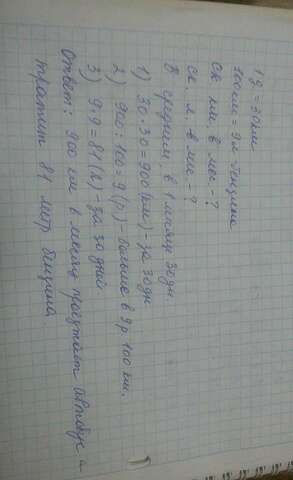 1 д = 30 км
100 км = 9 л бензина
Ск. км. в мес. - ?
Ск. л. в мес. - ?
В среднем в 1 месяце 30 дн.
1) 30·30=900(км) - за 30 дн
2) 900:100=9(р) - больше в 9 р 100 км.
3) 9·9=81(л) за 30 дней
Ответ: 900 км в месяц проезжает автобус и
тратит 81 литр бензина